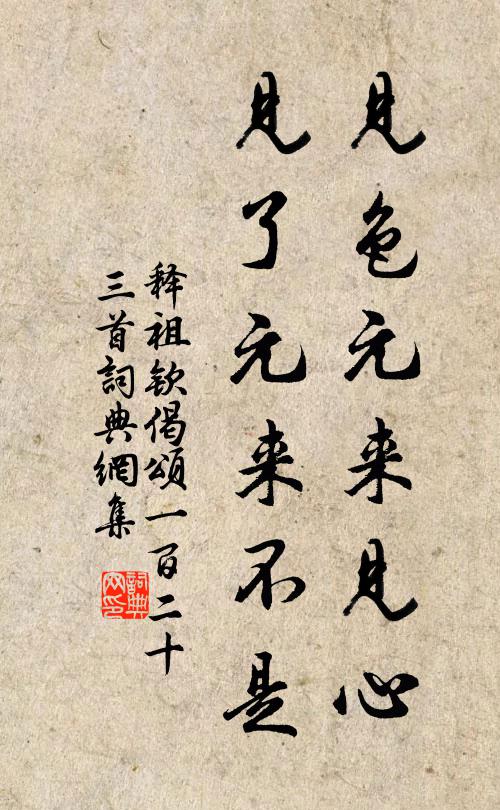 见色元来见心
见了元来不是
释祖钦偈颂一百二十
三首詞典網集
詞典
网印